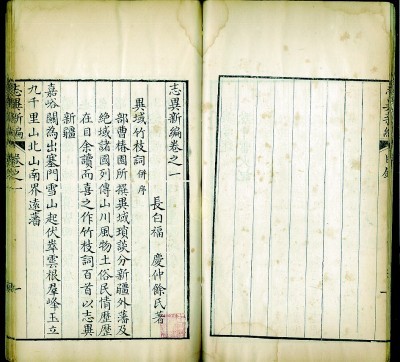 志異新編 目錄
志異新編卷之一
異域竹枝詞 併序
長白福 慶仲餘氏著
部曹椿園所撰異域瑣談分新疆外藩及
絕域諸國列傳山川風物土俗民情歷歷
在目余讀而喜之作竹枝詞百首以志異
新疆
嘉峪關為出塞門雪山起伏崒雲根羣峰玉立
九千里山北山南界遠藩
志異新編 卷之一 一